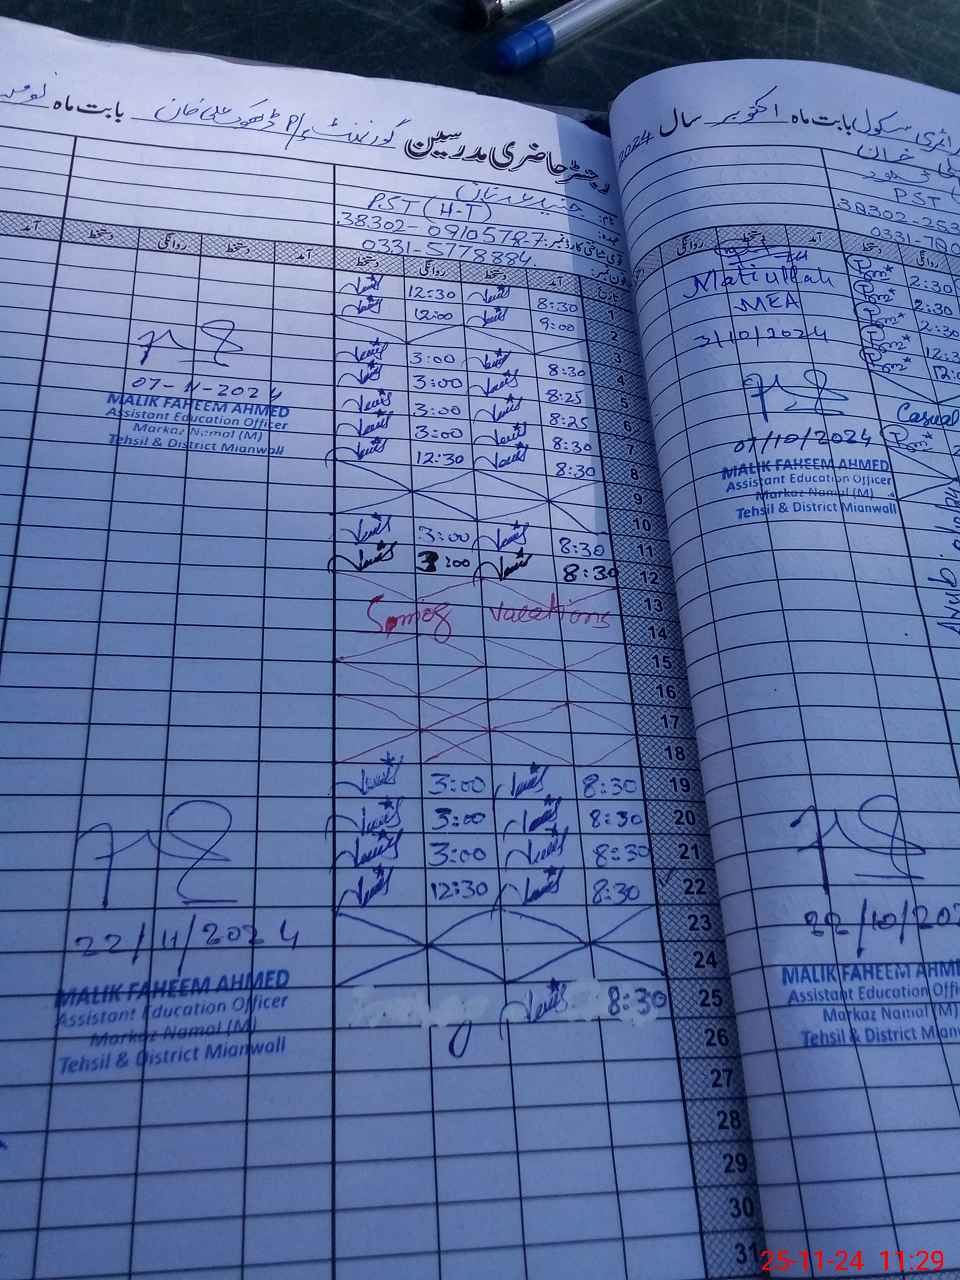 رجسٹر حاضری مدرسین گورنمنٹ P/S ڈھوک علی خان بابت ماہ
نام:
عہدہ: PST (H-T)
قومی شناختی کارڈ نمبر: 38302-0910578-7
فون نمبر: 0331-5778884
تاریخ آمد دستخط روانگی دستخط آمد دستخط روانگی دستخط آمد
1 8:30 12:30
2 9:00 12:00
3
4 8:30 3:00
5 8:25 3:00
6 8:25 3:00
7 8:30 3:00
8 8:30 12:30
9
10
11 8:30 3:00
12 8:30 3:00
13
14 Smog Vacations
15
16
17
18
19 8:30 3:00
20 8:30 3:00
21 8:30 3:00
22 8:30 12:30
23
24
25 8:30
26
27
28
29
30
31
07-11-2024
MALIK FAHEEM AHMED
Assistant Education Officer
Markaz Namal (M)
Tehsil & District Mianwali
22/11/2024
MALIK FAHEEM AHMED
Assistant Education Officer
Markaz Namal (M)
Tehsil & District Mianwali
سکول بابت ماہ اکتوبر سال 2024
خان
PST
38302-253
0331-780
روانگی دستخط آمد دستخط روانگی
2:30
2:30
2:30
12:3
12:0
Matiullah
MEA
3/10/2024
Casual
07/10/2024
MALIK FAHEEM AHMED
Assistant Education Officer
Markaz Namal (M)
Tehsil & District Mianwali
22/10/202
MALIK FAHEEM AHM
Assistant Education Offi
Markaz Namal (M
Tehsil & District Mian
25-11-24 11:29